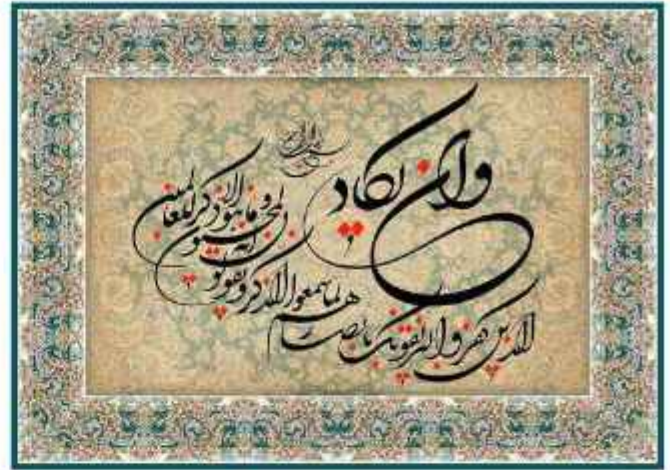 بسم الله الرحمن الرحیم
وان یکاد
الذین کفروا لیزلقونک بابصارهم لما سمعوا الذکر و یقولون
انه لمجنون
و ما هو الا ذکر للعالمین